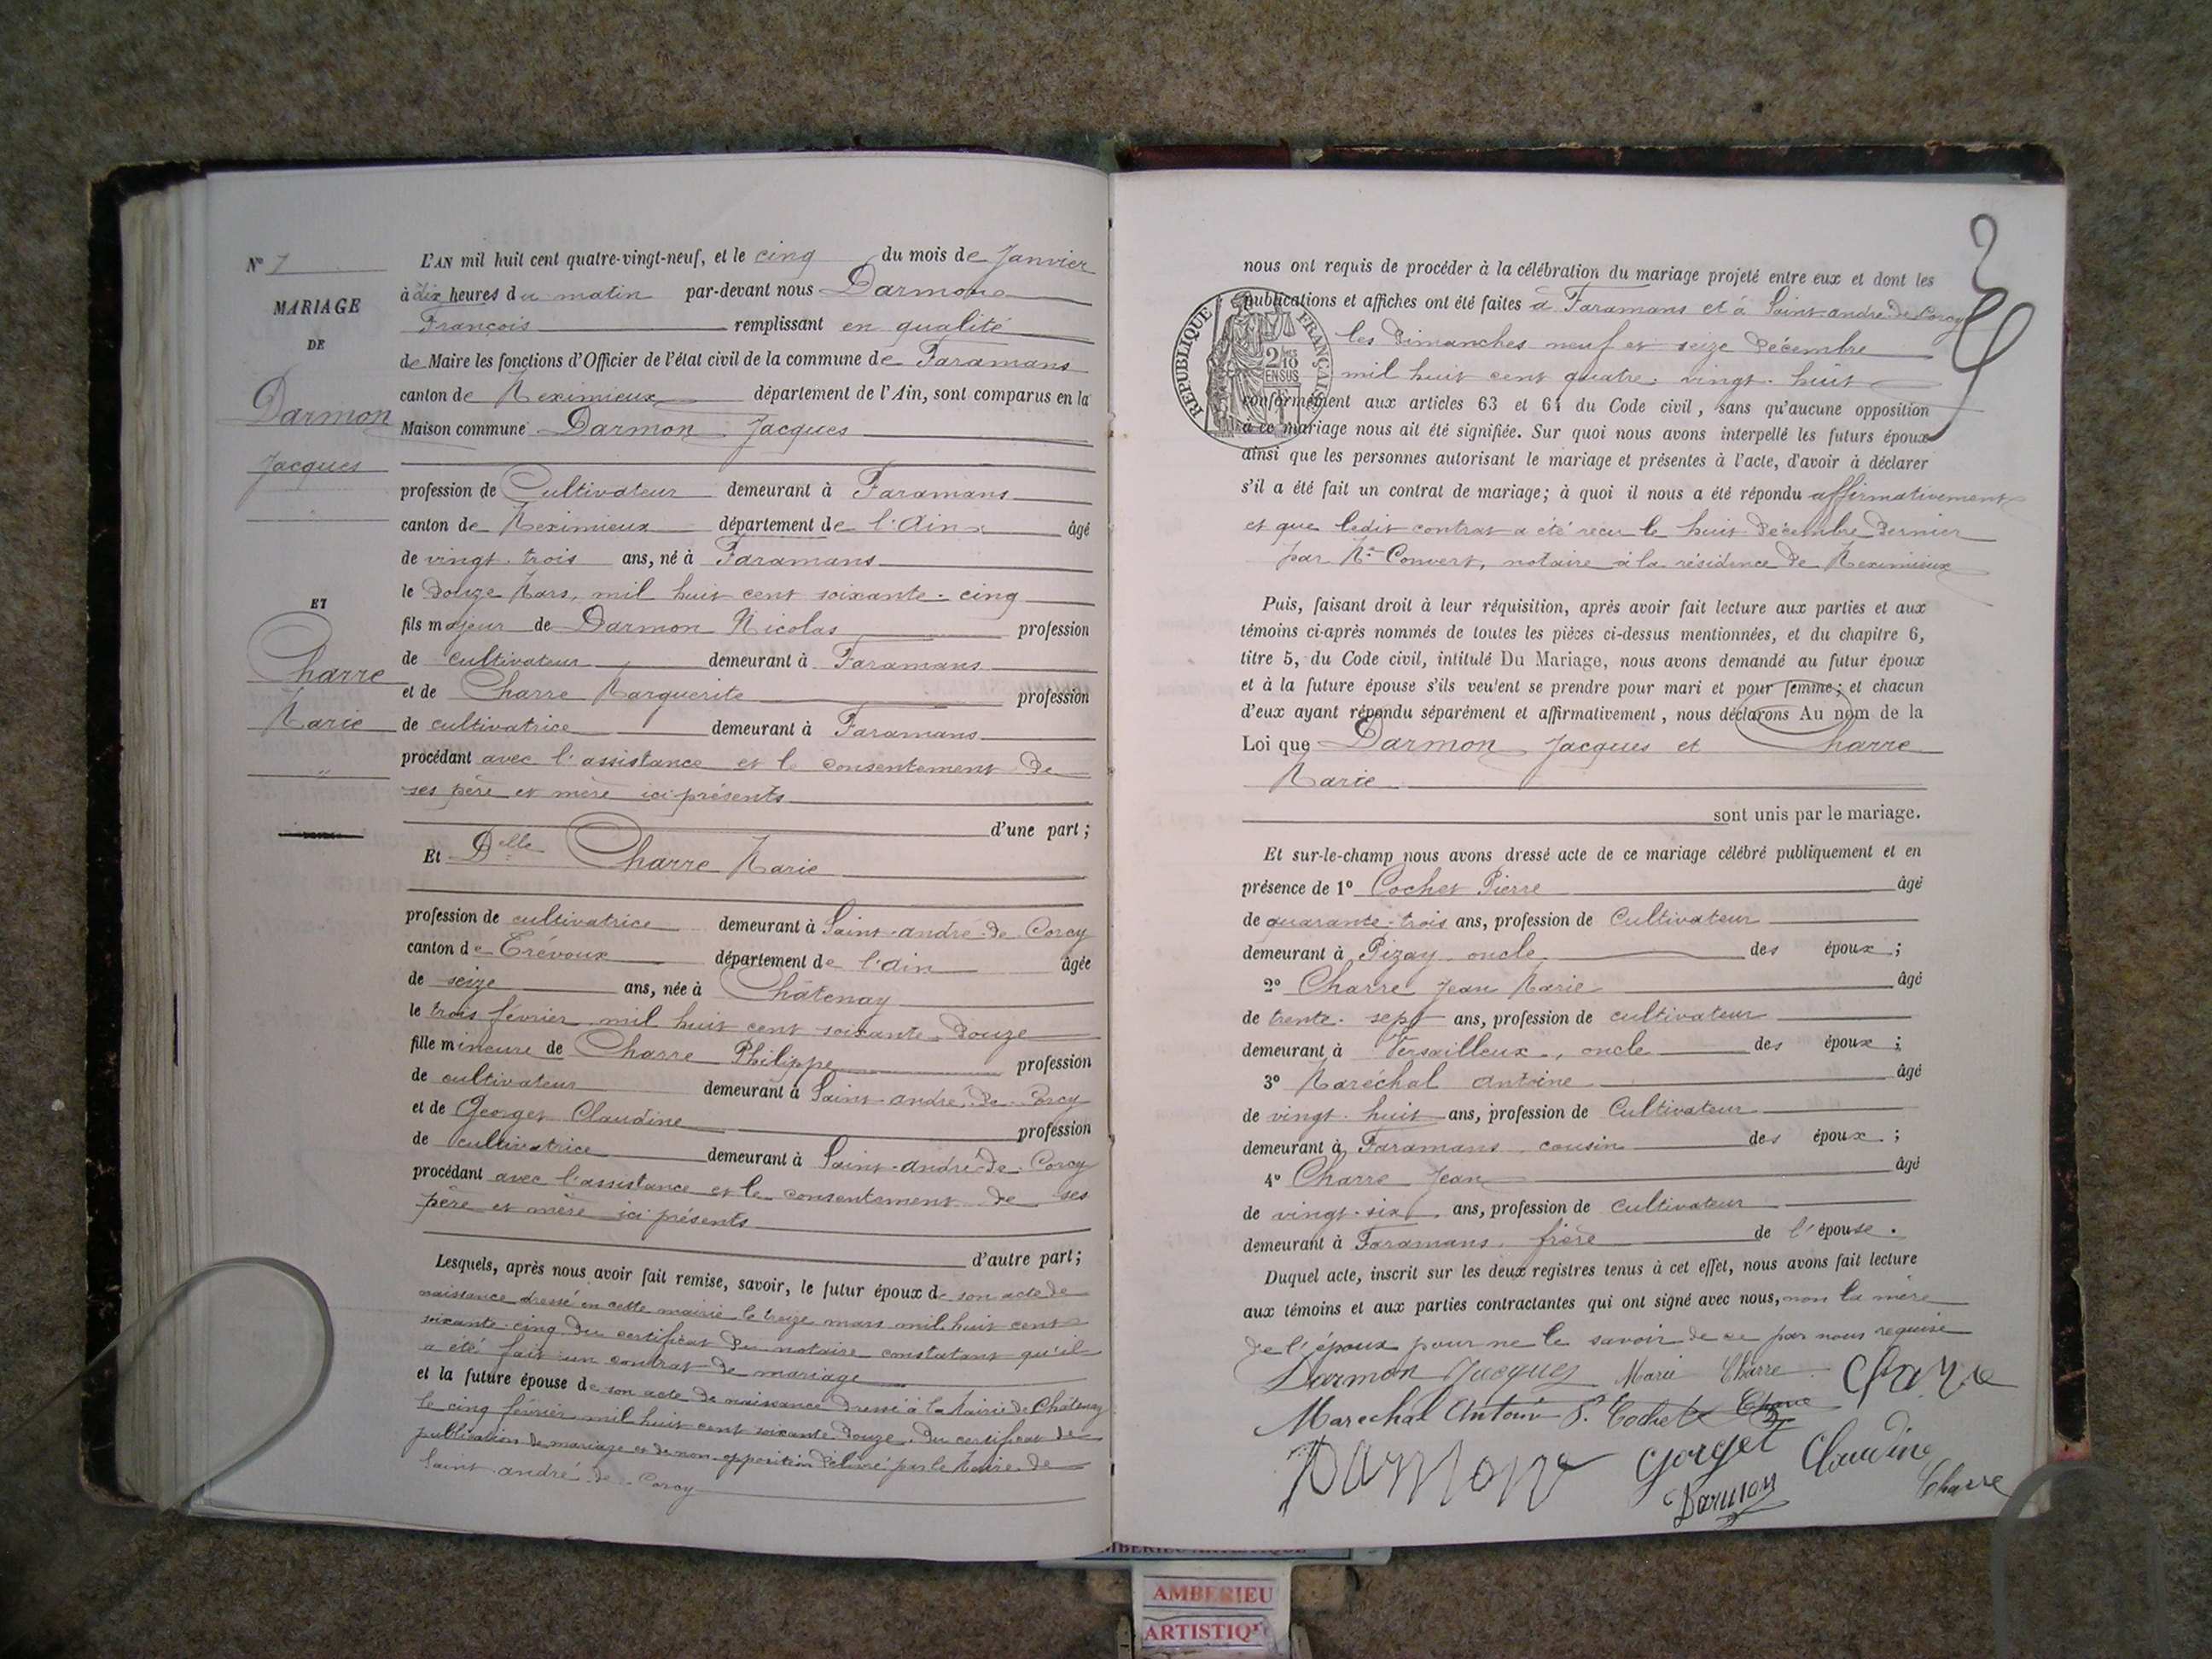 N° 1
MARIAGE
DE
Darmon
Jacques
ET
Charre
Marie
L'AN mil huit cent quatre-vingt-neuf, et le cinq du mois de Janvier
à dix heures du matin par-devant nous Darmon
François remplissant en qualité
de Maire les fonctions d'Officier de l'état civil de la commune de Faramans
canton de Meximieux département de l'Ain, sont comparus en la
Maison commune Darmon Jacques
profession de Cultivateur demeurant à Faramans
canton de Meximieux département de l'Ain âgé
de vingt-trois ans, né à Faramans
le douze Mars, mil huit cent soixante-cinq
fils majeur de Darmon Nicolas profession
de cultivateur demeurant à Faramans
et de Charre Marguerite profession
de cultivatrice demeurant à Faramans
procédant avec l'assistance et le consentement de
ses père et mère ici présents
d'une part ;
Et Delle Charre Marie
profession de cultivatrice demeurant à Saint-andré-de-Corcy
canton de Trévoux département de l'ain âgée
de seize ans, née à Châtenay
le trois février mil huit cent soixante-douze
fille mineure de Charre Philippe profession
de cultivateur demeurant à Saint-andré-de-Corcy
et de Georget Claudine profession
de cultivatrice demeurant à Saint-andré-de-Corcy
procédant avec l'assistance et le consentement de ses
père et mère ici présents
d'autre part ;
Lesquels, après nous avoir fait remise, savoir, le futur époux de son acte de
naissance dressé en cette mairie le treize mars mil huit cent
soixante-cinq du certificat du notaire constatant qu'il
a été fait un contrat de mariage
et la future épouse de son acte de naissance dressé à la Mairie de Châtenay
le cinq février mil huit cent soixante douze. Du certificat de
publication de mariage et de non-opposition délivré par le Maire de
Saint-andré-de-Corcy
nous ont requis de procéder à la célébration du mariage projeté entre eux et dont les
publications et affiches ont été faites à Faramans et à Saint-andré-de-Corcy
les Dimanches neuf et seize Décembre
mil huit cent quatre-vingt-huit
RÉPUBLIQUE FRANÇAISE
2 10 EN SUS
conformément aux articles 63 et 64 du Code civil, sans qu'aucune opposition
à ce mariage nous ait été signifiée. Sur quoi nous avons interpellé les futurs époux
ainsi que les personnes autorisant le mariage et présentes à l'acte, d'avoir à déclarer
s'il a été fait un contrat de mariage; à quoi il nous a été répondu affirmativement
et que ledit contrat a été reçu le huit Décembre dernier
par Me Convert, notaire à la résidence de Meximieux
Puis, faisant droit à leur réquisition, après avoir fait lecture aux parties et aux
témoins ci-après nommés de toutes les pièces ci-dessus mentionnées, et du chapitre 6,
titre 5, du Code civil, intitulé Du Mariage, nous avons demandé au futur époux
et à la future épouse s'ils veulent se prendre pour mari et pour femme; et chacun
d'eux ayant répondu séparément et affirmativement, nous déclarons Au nom de la
Loi que Darmon Jacques et Charre
Marie
sont unis par le mariage.
Et sur-le-champ nous avons dressé acte de ce mariage célébré publiquement et en
présence de 1° Cochet Pierre âgé
de quarante-trois ans, profession de Cultivateur
demeurant à Pizay oncle des époux ;
2° Charre Jean Marie âgé
de trente-sept ans, profession de cultivateur
demeurant à Versailleux, oncle des époux ;
3° Maréchal antoine âgé
de vingt-huit ans, profession de Cultivateur
demeurant à Faramans cousin des époux ;
4° Charre Jean âgé
de vingt-six ans, profession de cultivateur
demeurant à Faramans frère de l'épouse.
Duquel acte, inscrit sur les deux registres tenus à cet effet, nous avons fait lecture
aux témoins et aux parties contractantes qui ont signé avec nous, non la mère
de l'époux pour ne le savoir de ce par nous requise
Darmon Jacques Marie Charre Charre
Marechal Antoine P. Cochet Charre
Darmon Gorget Claudine
Darmon Charre
AMBERIEU ARTISTIQUE
AMBERIEU
ARTISTIQ